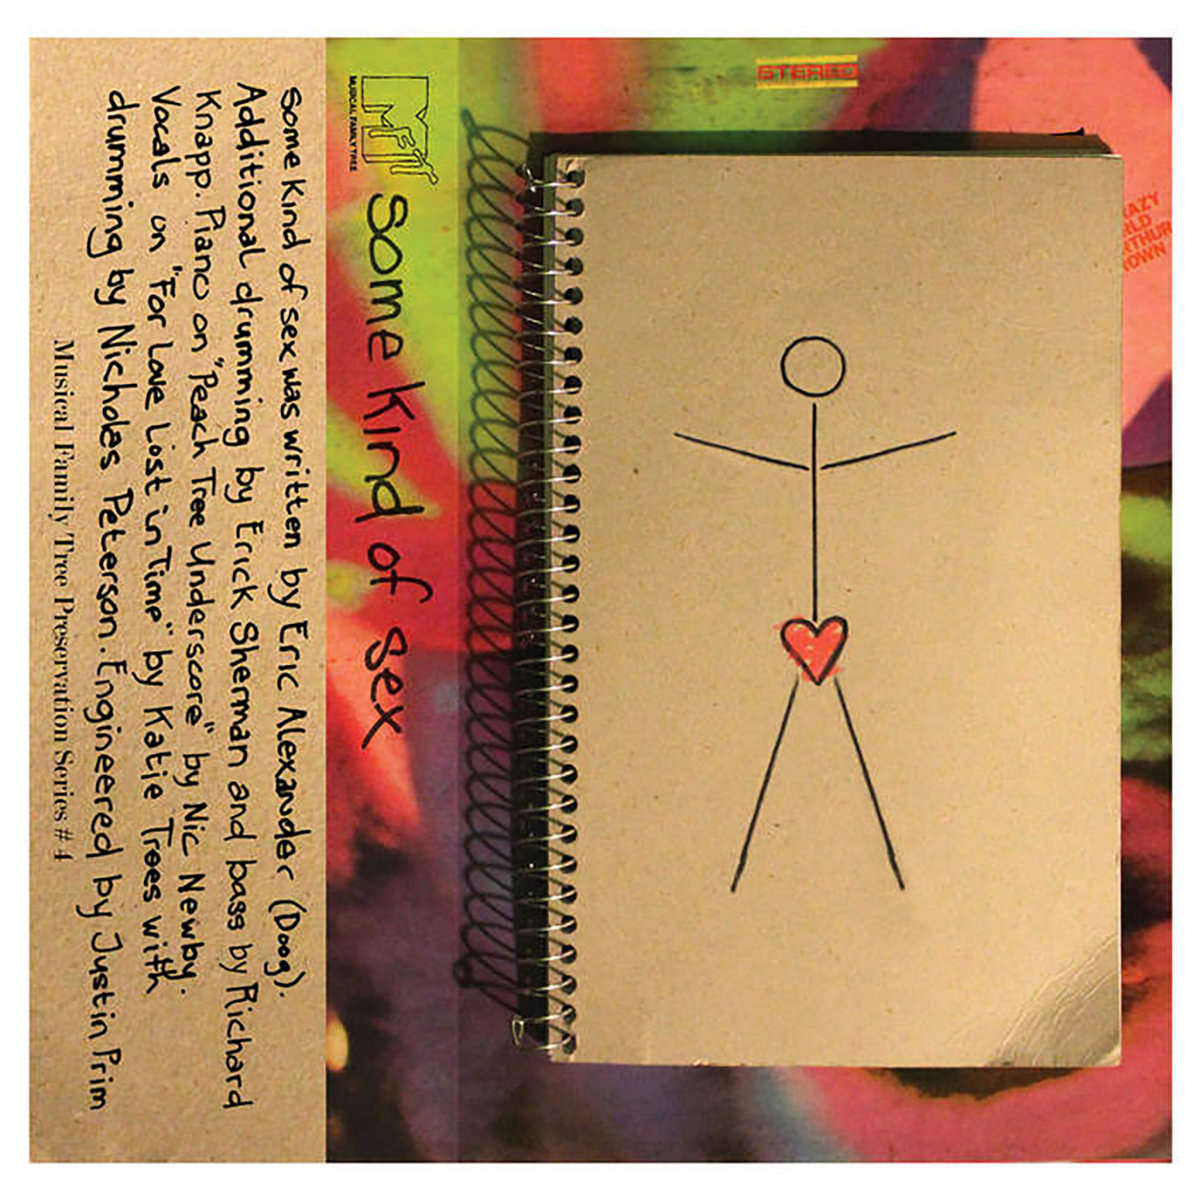 Some Kind of sex was written by Eric Alexander (Doog).
Additional drumming by Erick Sherman and bass by Richard
Knapp. Piano on "Peach Tree Underscore" by Nic Newby.
Vocals on "For Love Lost in Time" by Katie Trees with
drumming by Nicholas Peterson. Engineered by Justin Prim
Musical Family Tree Preservation Series #4
MFT
MUSICAL FAMILY TREE
Some Kind of Sex
STEREO